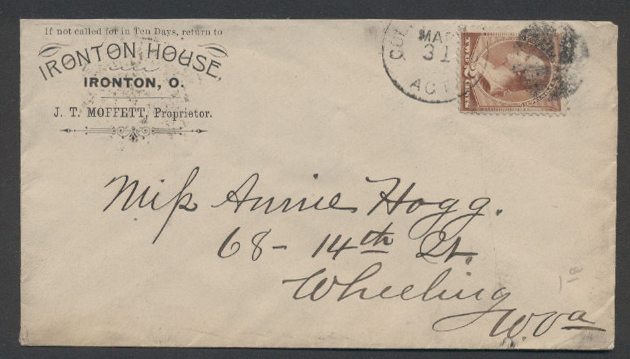 If not called for in Ten Days, return to
IRONTON HOUSE,
IRONTON, O.
J. T. MOFFETT, Proprietor.
MAR
31
Miss Annie Hogg.
68 - 14th St.
Wheeling
W. Va